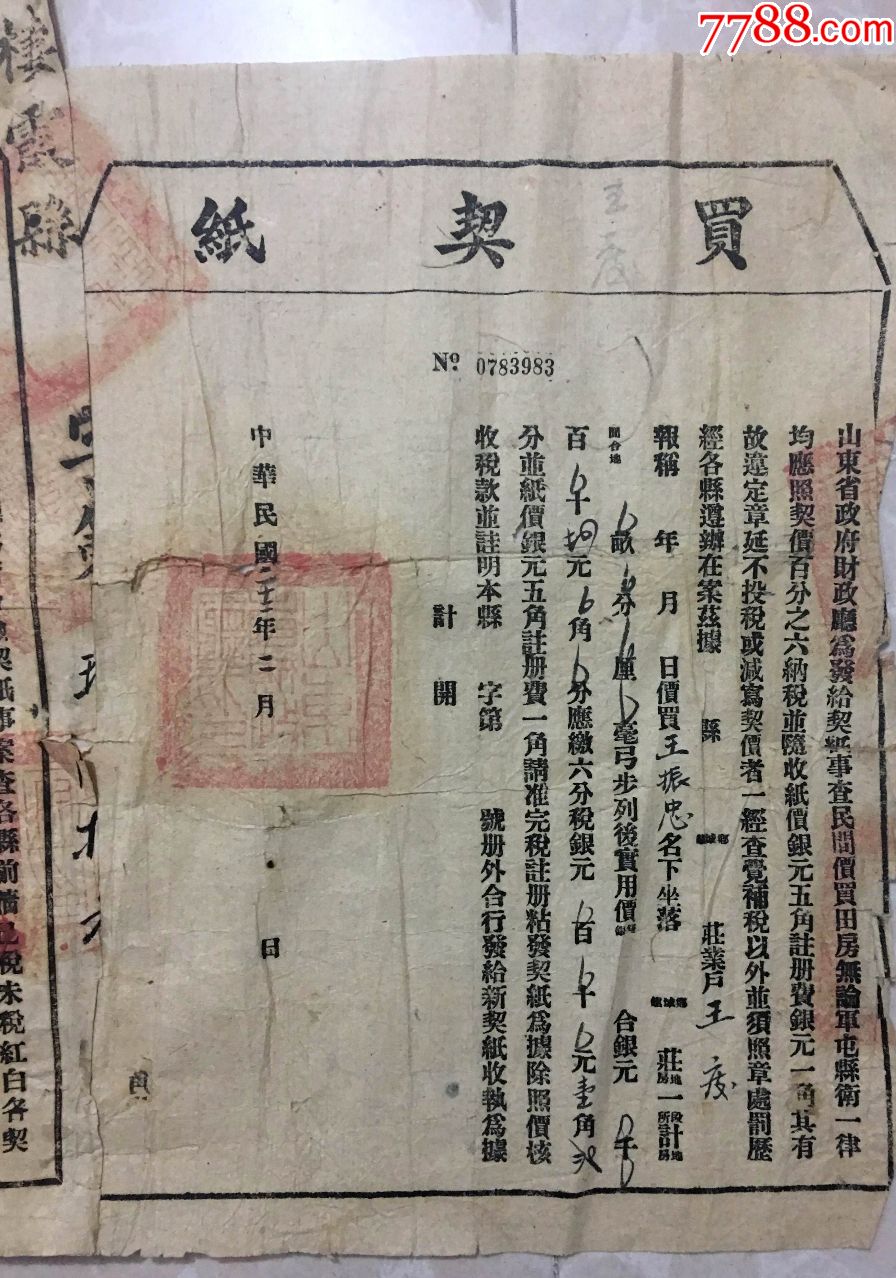 7788.com
买契紙
王度
№ 0783983
山東省政府財政廳為發給契紙事查民間價買田房無論軍屯縣衛一律
均應照契價百分之六納稅並隨收紙價銀元五角註册費銀元一角其有
故違定章延不投稅或減寫契價者一經查覺補稅以外並須照章處罰歷
經各縣遵辦在案茲據 縣 莊業戶王度
報稱 年 月 日價買王振忠名下坐落 莊 地房 一 段所 計 地房
間合地 畝 分 厘 毫弓步列後實用價 合銀元 千
百 十 元 角 分應繳六分稅銀元 百 十 元壹角
分並紙價銀元五角註册費一角請准完稅註册粘發契紙為據除照價核
收稅款並註明本縣 字第 號册外合行發給新契紙收執為據
計開
中華民國二十二年二月 日
棲霞縣
契紙事案查各縣前清已稅未稅紅白各契